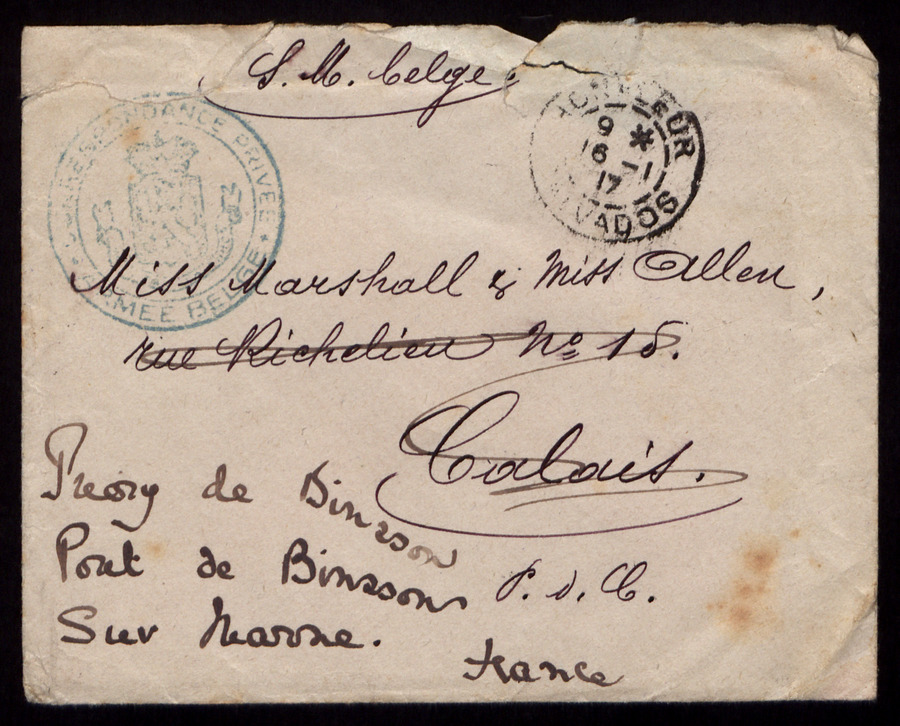 S. M. belge.
CORRESPONDANCE PRIVÉE
ARMÉE BELGE
HONFLEUR
9 *
6 -11
17
CALVADOS
Miss Marshall & Miss Allen,
rue Richelieu Nº 18.
Calais.
Preory de Binsson
Pont de Binssons P. d. C.
Sur Marne.
France